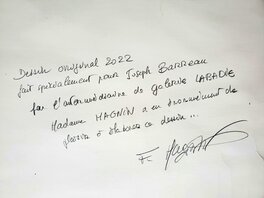 Dessin original 2022
fait spécialement pour Joseph Barreau
par l'intermédiaire de galerie LABADIE
Madame MAGNIN a eu énormément de
plaisir à élaborer ce dessin...
F.